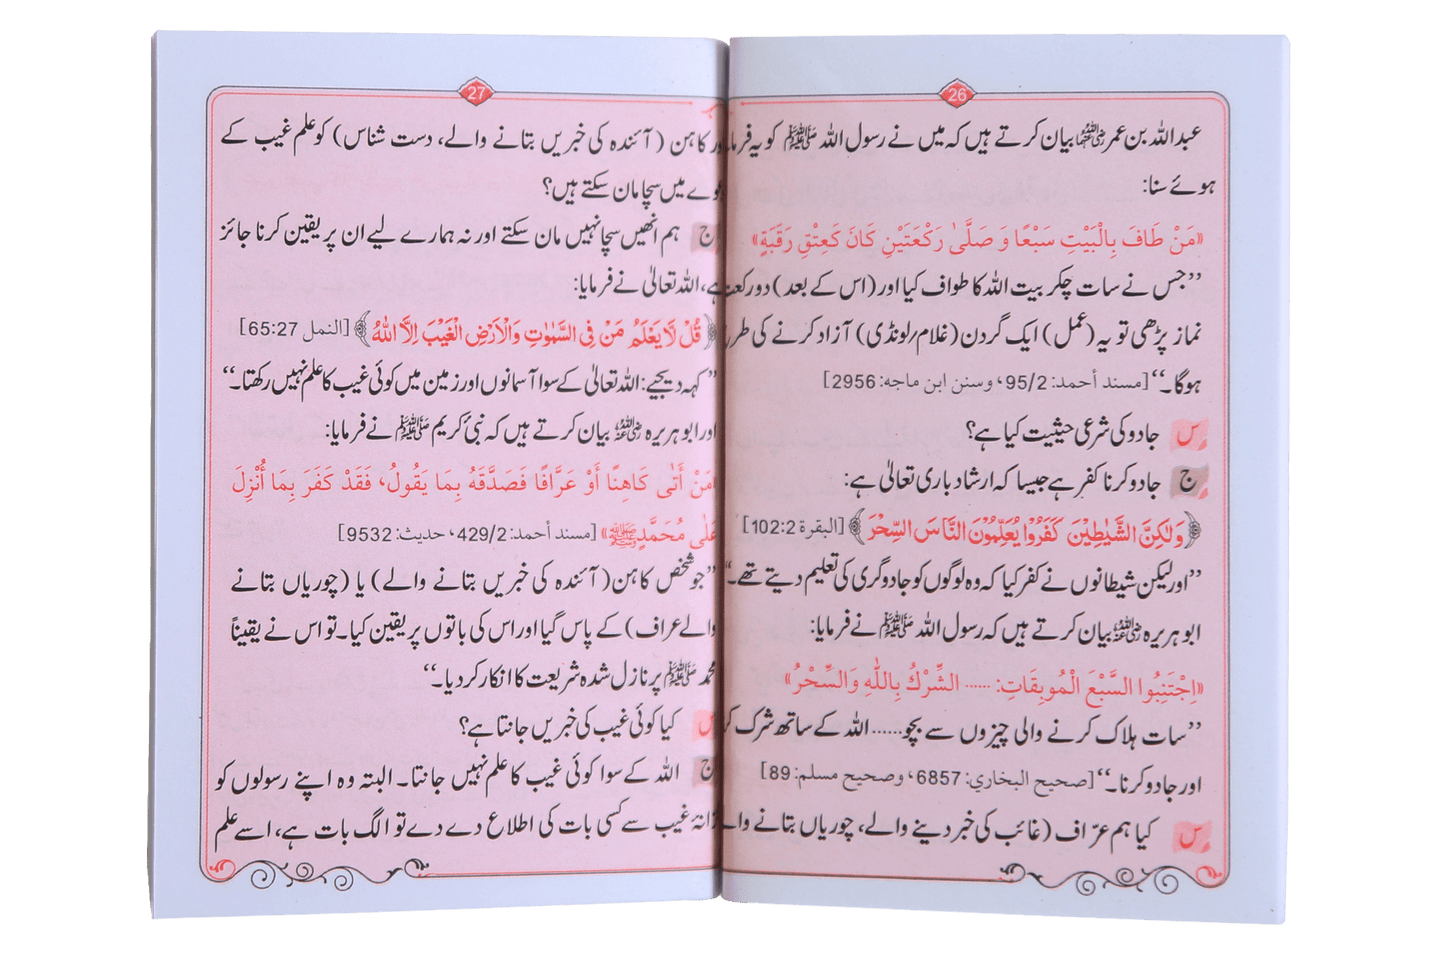 26
عبداللہ بن عمر رضی اللہ عنہما بیان کرتے ہیں کہ میں نے رسول اللہ ﷺ کو یہ فرما
ہوئے سنا:
«مَنْ طَافَ بِالْبَيْتِ سَبْعًا وَ صَلَّىٰ رَكْعَتَيْنِ كَانَ كَعِتْقِ رَقَبَةٍ»
’’جس نے سات چکر بیت اللہ کا طواف کیا اور (اس کے بعد) دو رکعت
نماز پڑھی تو یہ (عمل) ایک گردن (غلام/لونڈی) آزاد کرنے کی طر
ہوگا۔‘‘ [مسند أحمد: 95/2، وسنن ابن ماجه: 2956]
س جادو کی شرعی حیثیت کیا ہے؟
ج جادو کرنا کفر ہے جیسا کہ ارشاد باری تعالیٰ ہے:
﴿وَلٰكِنَّ الشَّيٰطِيْنَ كَفَرُوْا يُعَلِّمُوْنَ النَّاسَ السِّحْرَ﴾ [البقرة 102:2]
’’اور لیکن شیطانوں نے کفر کیا کہ وہ لوگوں کو جادوگری کی تعلیم دیتے تھے۔‘‘
ابو ہریرہ رضی اللہ عنہ بیان کرتے ہیں کہ رسول اللہ ﷺ نے فرمایا:
«اِجْتَنِبُوا السَّبْعَ الْمُوبِقَاتِ: ...... الشِّرْكُ بِاللّٰهِ وَالسِّحْرُ»
’’سات ہلاک کرنے والی چیزوں سے بچو...... اللہ کے ساتھ شرک کر
اور جادو کرنا۔‘‘ [صحيح البخاري: 6857، وصحيح مسلم: 89]
س کیا ہم عرّاف (غائب کی خبر دینے والے، چوریاں بتانے وا
27
ور کاہن (آئندہ کی خبریں بتانے والے، دست شناس) کو علم غیب کے
وے میں سچا مان سکتے ہیں؟
ج ہم انھیں سچا نہیں مان سکتے اور نہ ہمارے لیے ان پر یقین کرنا جائز
ہے، اللہ تعالیٰ نے فرمایا:
﴿قُلْ لَّا يَعْلَمُ مَنْ فِى السَّمٰوٰتِ وَالْاَرْضِ الْغَيْبَ اِلَّا اللّٰهُ﴾ [النمل 65:27]
’’کہہ دیجیے: اللہ تعالیٰ کے سوا آسمانوں اور زمین میں کوئی غیب کا علم نہیں رکھتا۔‘‘
اور ابو ہریرہ رضی اللہ عنہ بیان کرتے ہیں کہ نبی کریم ﷺ نے فرمایا:
«مَنْ أَتٰى كَاهِنًا أَوْ عَرَّافًا فَصَدَّقَهُ بِمَا يَقُولُ، فَقَدْ كَفَرَ بِمَا أُنْزِلَ
عَلٰى مُحَمَّدٍ ﷺ» [مسند أحمد: 429/2، حديث: 9532]
’’جو شخص کاہن (آئندہ کی خبریں بتانے والے) یا (چوریاں بتانے
والے عراف) کے پاس گیا اور اس کی باتوں پر یقین کیا۔ تو اس نے یقیناً
محمد ﷺ پر نازل شدہ شریعت کا انکار کر دیا۔‘‘
س کیا کوئی غیب کی خبریں جانتا ہے؟
ج اللہ کے سوا کوئی غیب کا علم نہیں جانتا۔ البتہ وہ اپنے رسولوں کو
زانۂ غیب سے کسی بات کی اطلاع دے دے تو الگ بات ہے، اسے علم